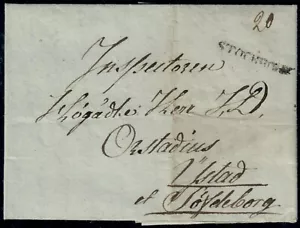 20
STOCKHOLM
Inspectoren
Högädle Herr J.D.
Orstadius
Ystad
et Söfdeborg.